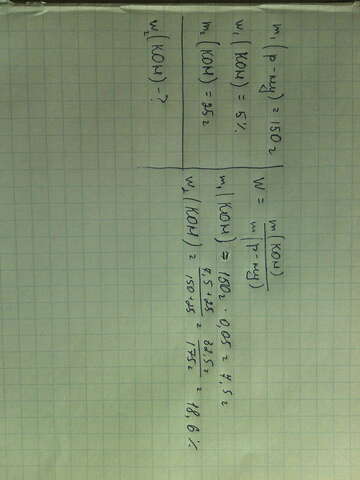 m₁ (р-ну) = 150г
w₁ (KOH) = 5%
m₂ (KOH) = 25г
w₂ (KOH) - ?
w = m(KOH) / m(р-ну)
m₁ (KOH) = 150г · 0,05 = 7,5г
w₂ (KOH) = 7,5+25 / 150+25 = 32,5г / 175г = 18,6%